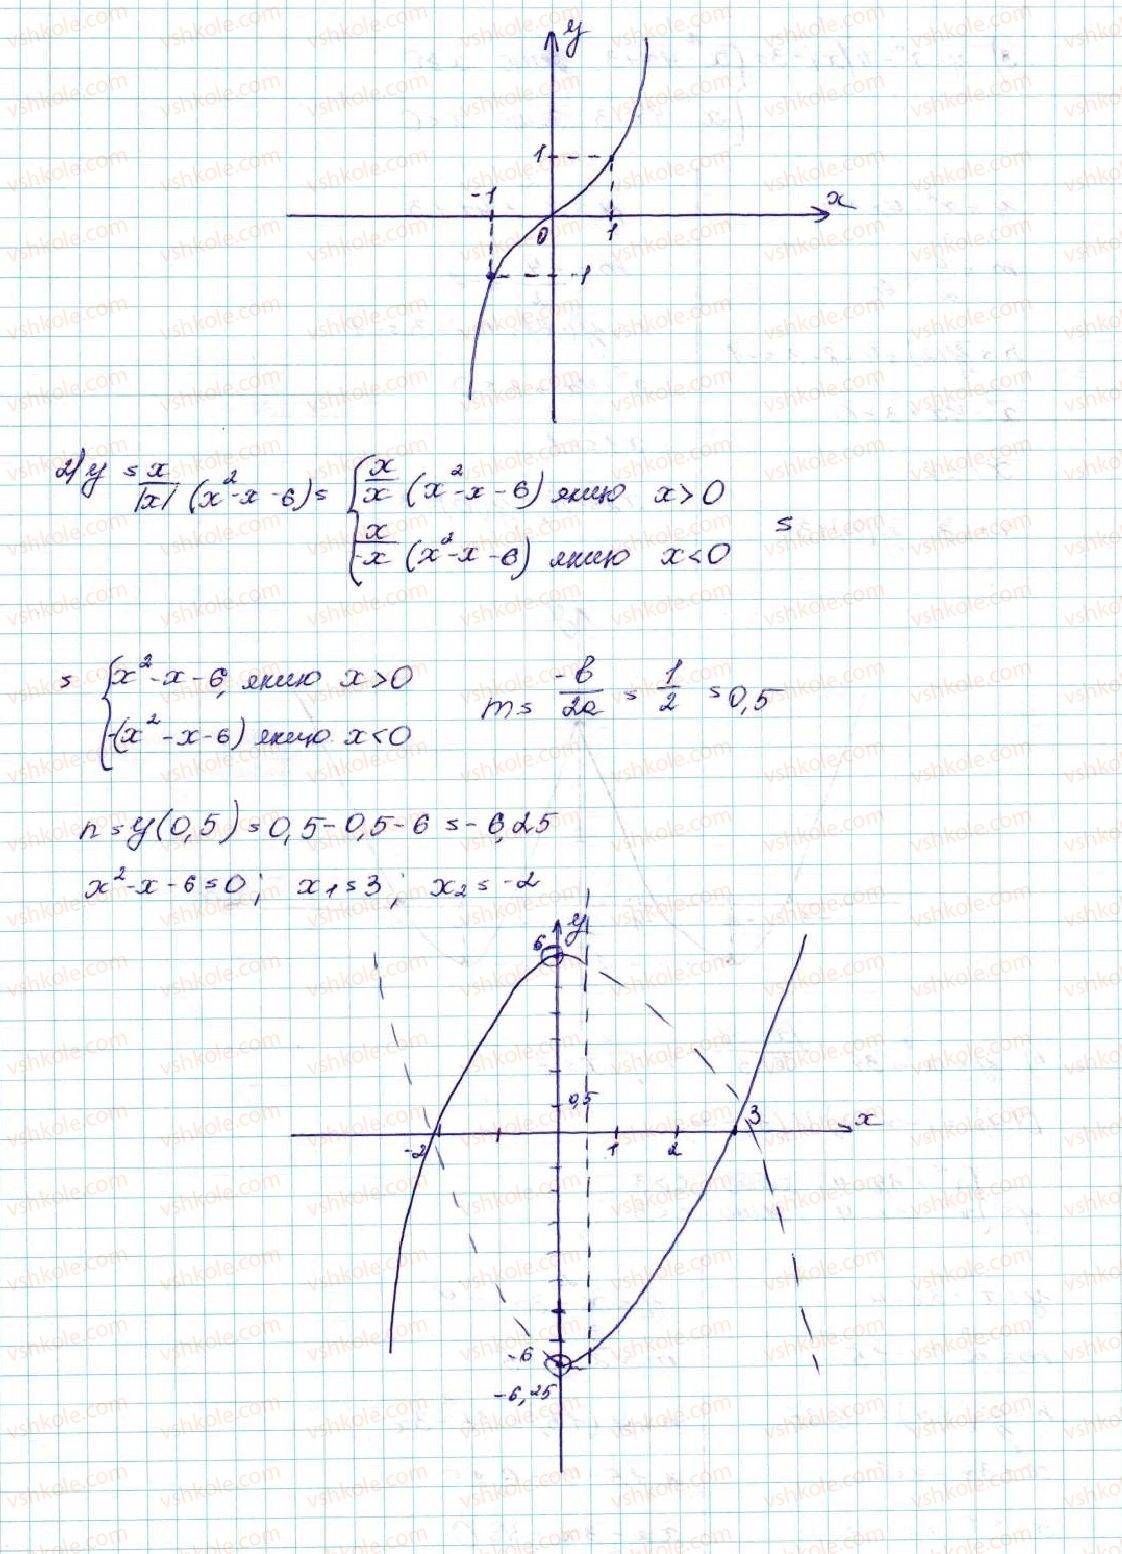 y
1
-1
x
0
1
-1
2) y = x/|x| (x²-x-6) = { x/x (x²-x-6) якщо x>0
{ x/-x (x²-x-6) якщо x<0 =
= { x²-x-6, якщо x>0
{ -(x²-x-6) якщо x<0
m = -b/2a = 1/2 = 0,5
n = y(0,5) = 0,5-0,5-6 = -6,25
x²-x-6=0; x₁=3; x₂=-2
y
6
0,5
3
x
-2
1
2
-6
-6,25
vshkole.com